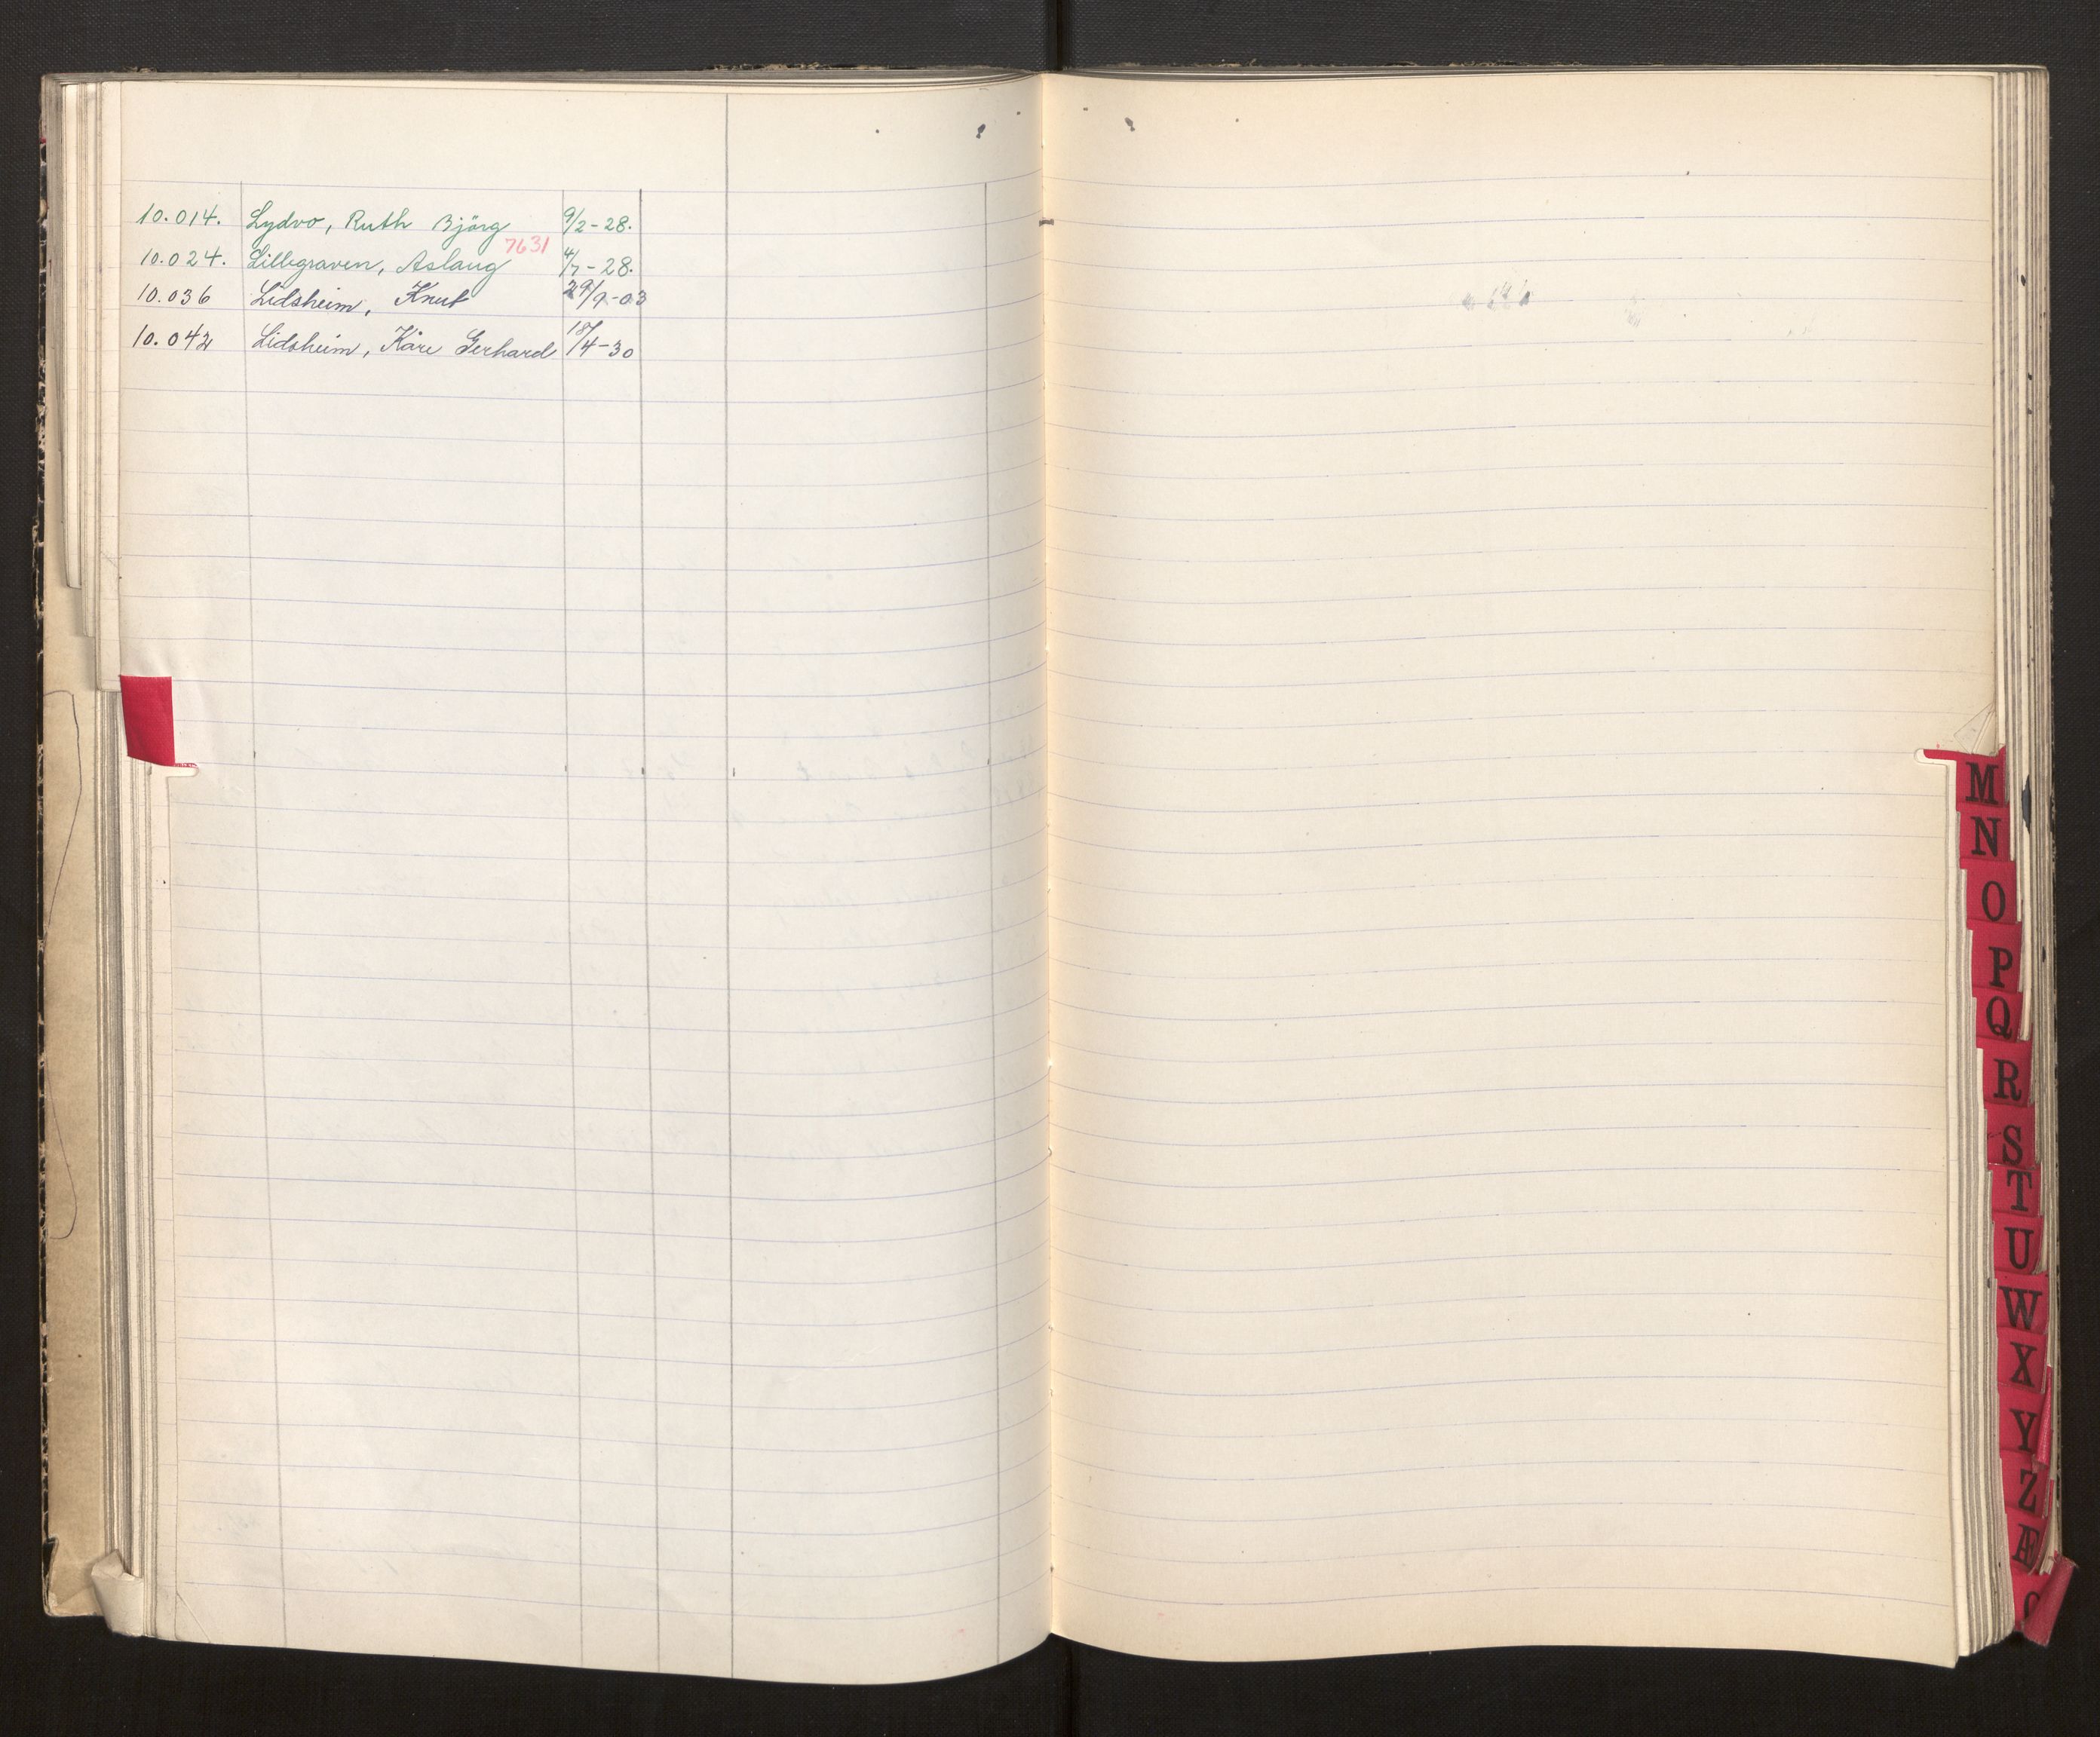 10.014. Lydvo, Ruth Björg 9/2-28.
7631
10.024. Lillegraven, Aslaug 4/7-28.
10.036 Lidsheim, Knut 29/9-03
10.042 Lidsheim, Kåre Gerhard 18/4-30
M
N
O
P
Q
R
S
T
U
W
X
Y
Z
Æ